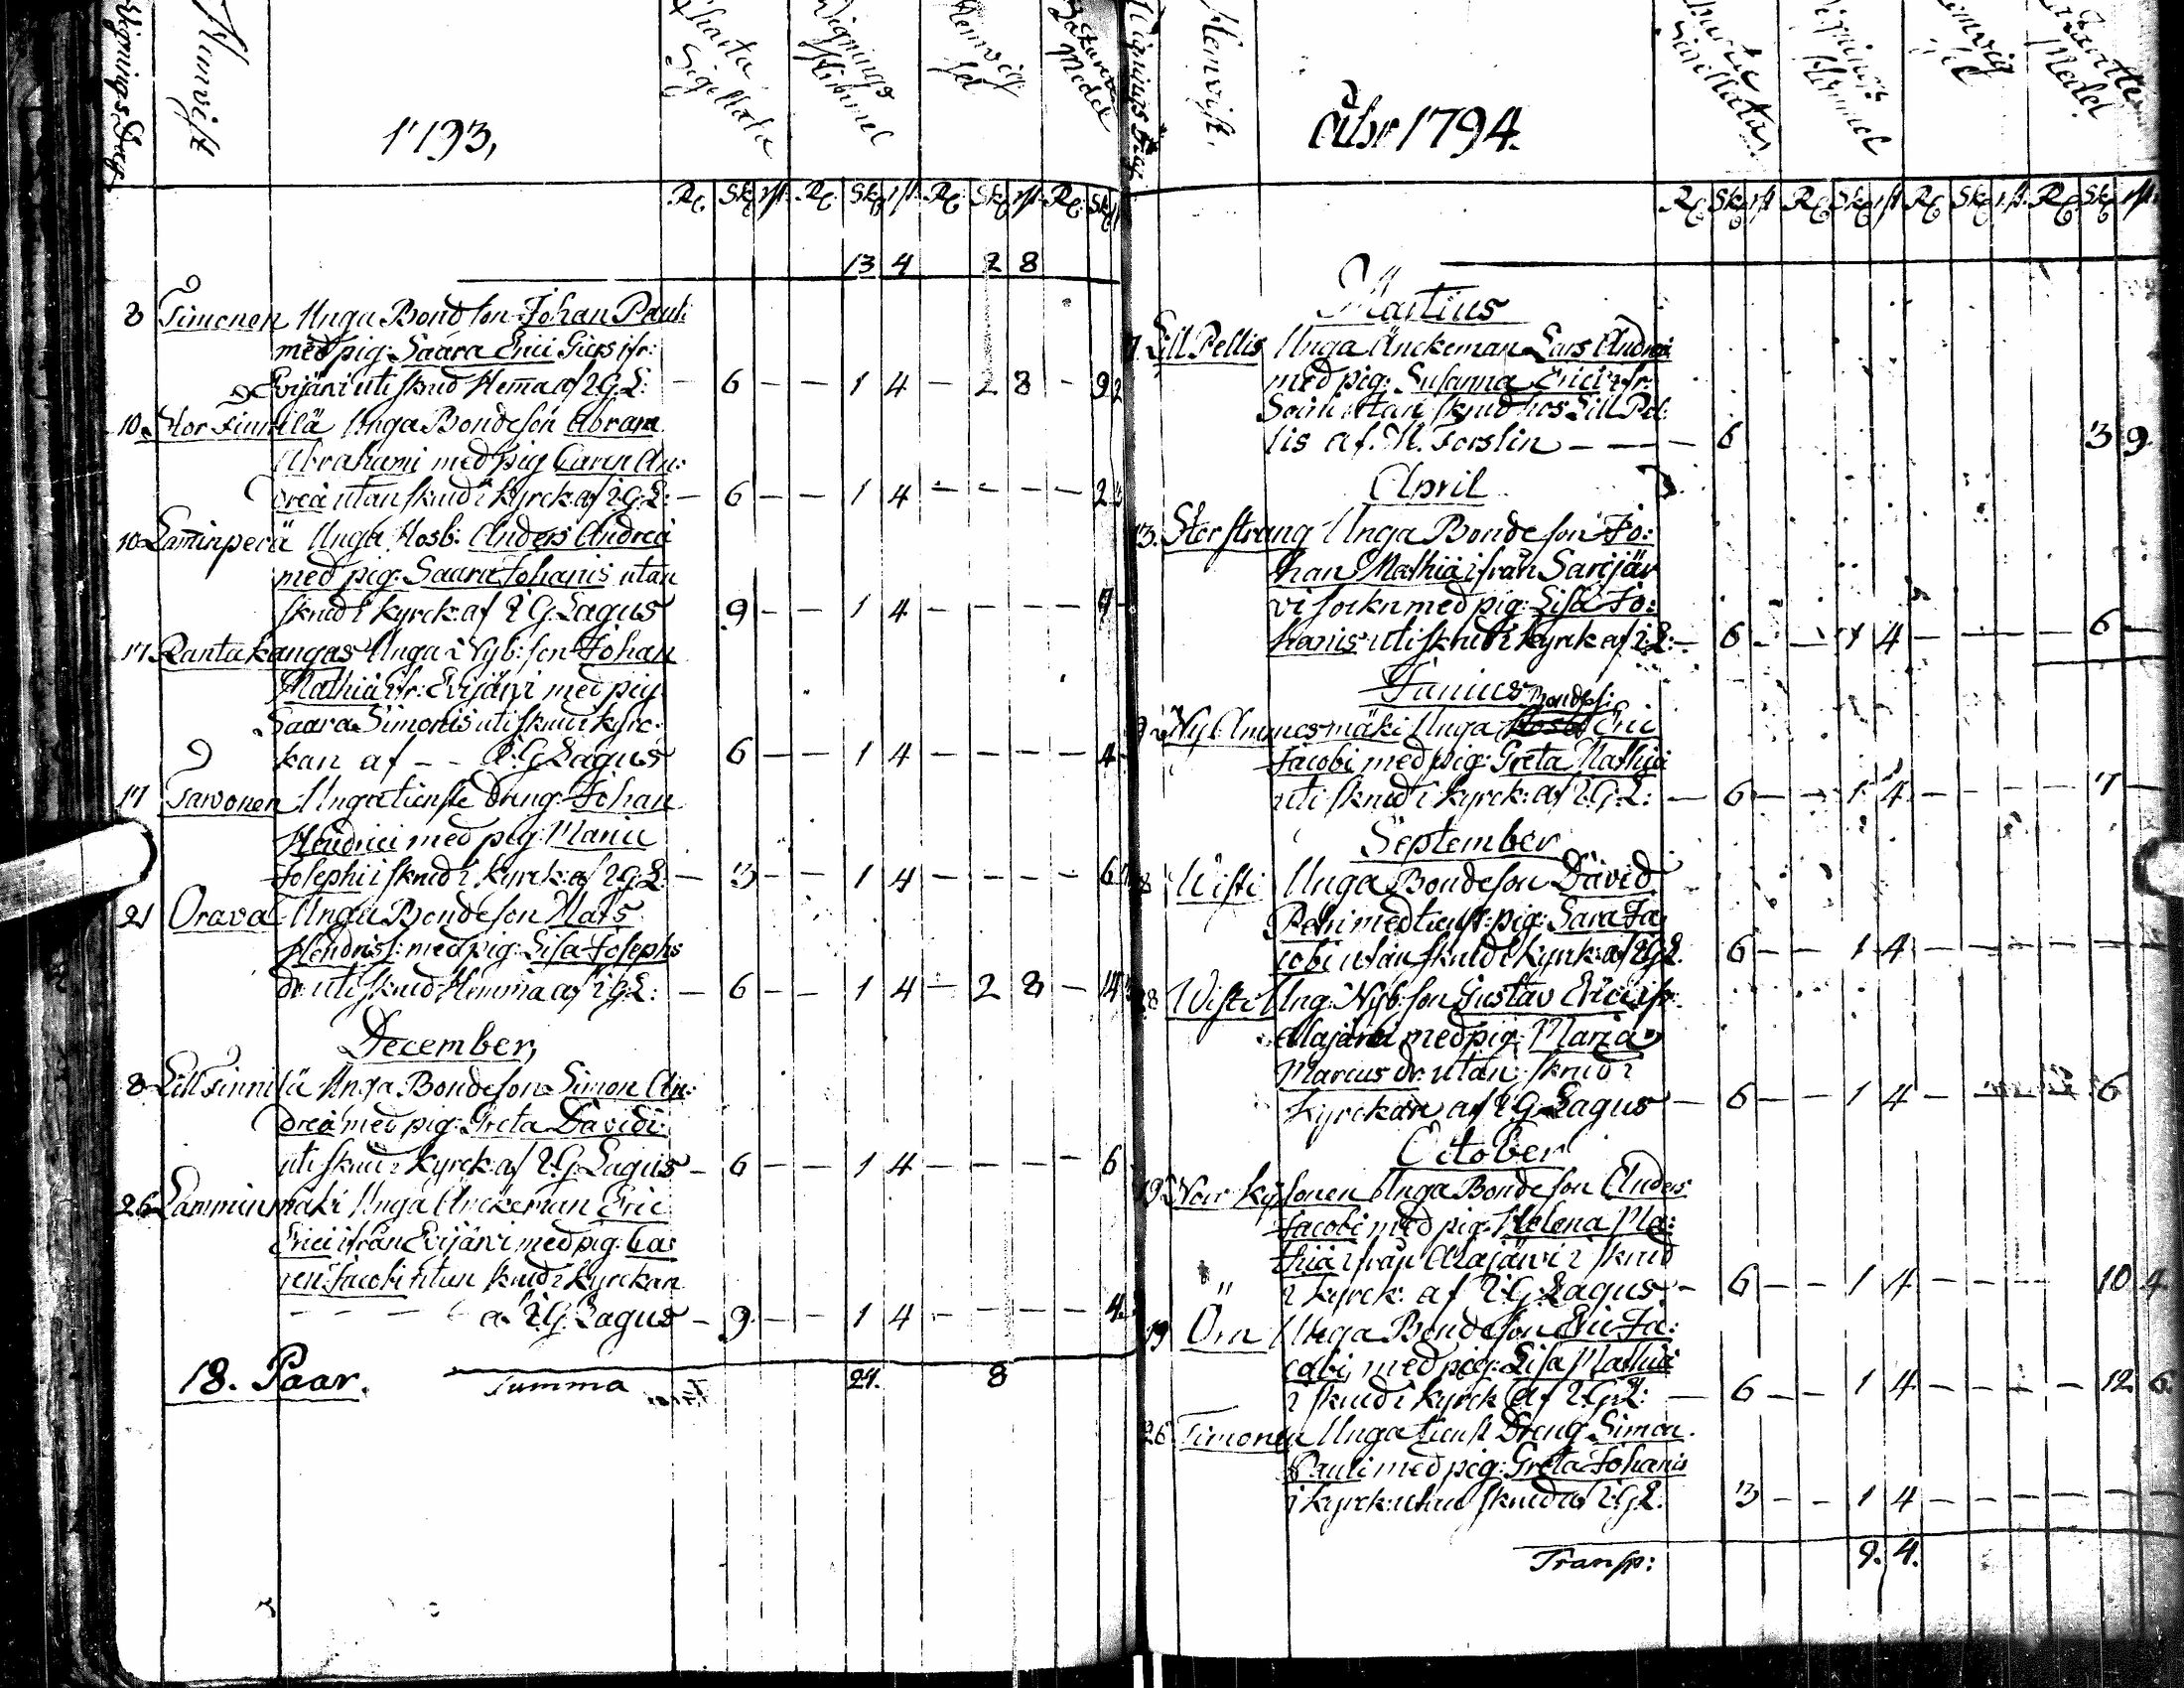 Wignings Dag
Hemvist
1793,
Charta Sigillata
Wignings Himmel
Hemvig: sel
Fattigas Medel
Rd. Sk. rst. Rd. Sk. rst. Rd. Sk. rst. Rd. Sk.
13 4 2 8
8 Timonen Unga Bond son Johan Pauli
med pig: Saara Erici Giers ifr:
Evijärvi uti skrud Hemma af I.G.L: — 6 — — 1 4 — 2 8 — 9 2
10. Stor Finnilä Unga Bondeson Abram
Abrahami med pig Caren An:
dreä utan skrud i Kyrck: af I.G.L: — 6 — — 1 4 — — — — 2
10 Laminperä Unga Hosb: Anders Andreä
med pig: Saara Johanis utan
skrud i kyrck: af I G Lagus 9 — — 1 4 — — — —
17 Rantakangas Unga Nyb: son Johan
Mathiä ifr: Evijärvi med pig.
Saara Simonis uti skrud i kyrc:
kan af — — I: G Lagus 6 — — 1 4 — — — — 4
17 Tawonen Unga tienste dreng: Johan
Hendrici med pig: Maria
Josephi i skrud i kyrck: af I G L: — 3 — — 1 4 — — — — 6
21 Orava Unga Bondeson Mats
Hendriss: med pig: Lisa Josephs
dr: uti skrud Hemma af I G L: — 6 — — 1 4 — 2 8 — 14
December,
8 Lill Finnilä Unga Bondeson Simon An:
dreä med pig: Greta Davidi:
uti skrud i kyrck: af I.G. Lagus — 6 — — 1 4 — — — — 6
26 Lamminmäki Unga Änckeman Eric
Erici ifrån Evijärvi med pig: Ca:
ren Jacobi utan skrud i kyrckan
— — — af I G. Lagus — 9 — — 1 4 — — — — 4
18. Paar. Summa 24. 8
Wignings Dag
Hemvist.
Åhr 1794.
Charta Sigillata.
Wignings Himmel
Hemvig sel
Fattiga Medel.
Rd Sk rst Rd Sk rst Rd Sk rst. Rd Sk rst.
Martius
7. Lill Pellis Unga Änckeman Lars Andreä
med pig: Susanna Erici ifr.
Soini utan skrud hos Lill Pel:
lis af. M. Forslin — — — 6 3 9
April
13. Storstrang Unga Bondeson Jo:
han Mathiä ifrån Sarijär
vi sockn med pig: Lisa Jo:
hanis uti skrud i kyrck af I: L: — 6 — — 1 4 — — — 6 —
Junius
Bondes:
Nyb Ammesmäki Unga Hosb Eric
Jacobi med pig: Greta Mathiä
uti skrud i kyrck: af I.G.L: — 6 — — 1 4 — — — 7 —
September
28 Wisti Unga Bondeson David
Petri med tienst: pig: Sara Ja
cobi utan skrud i kyrck: af I G L. 6 — — 1 4 — — — — — —
28 Wisti Ung: Nyb: son Gustav Erici ifr:
Alajärvi med pig: Maria
Marcus dr: utan skrud i
kyrckan af I G Lagus — 6 — — 1 4 — — — 6
October
19 Norr kyjonen Unga Bondeson Anders
Jacobi med pig: Helena Ma:
thiä ifrån Alajärvi i skrud
i kyrck: af I.G. Lagus — 6 — — 1 4 — — — 10 4
19 Örn Unga Bondeson Eric Ja:
cobi, med pig: Lisa Mathiä
i skrud i kyrck af I.G.L: — 6 — — 1 4 — — — — 12 6
26 Timonen Unga tienst Dreng Simon.
Pauli med pig: Greta Johanis
i kyrck: utan skrud af I.G.L. 3 — — 1 4 — — — — — —
Transp: 9. 4.